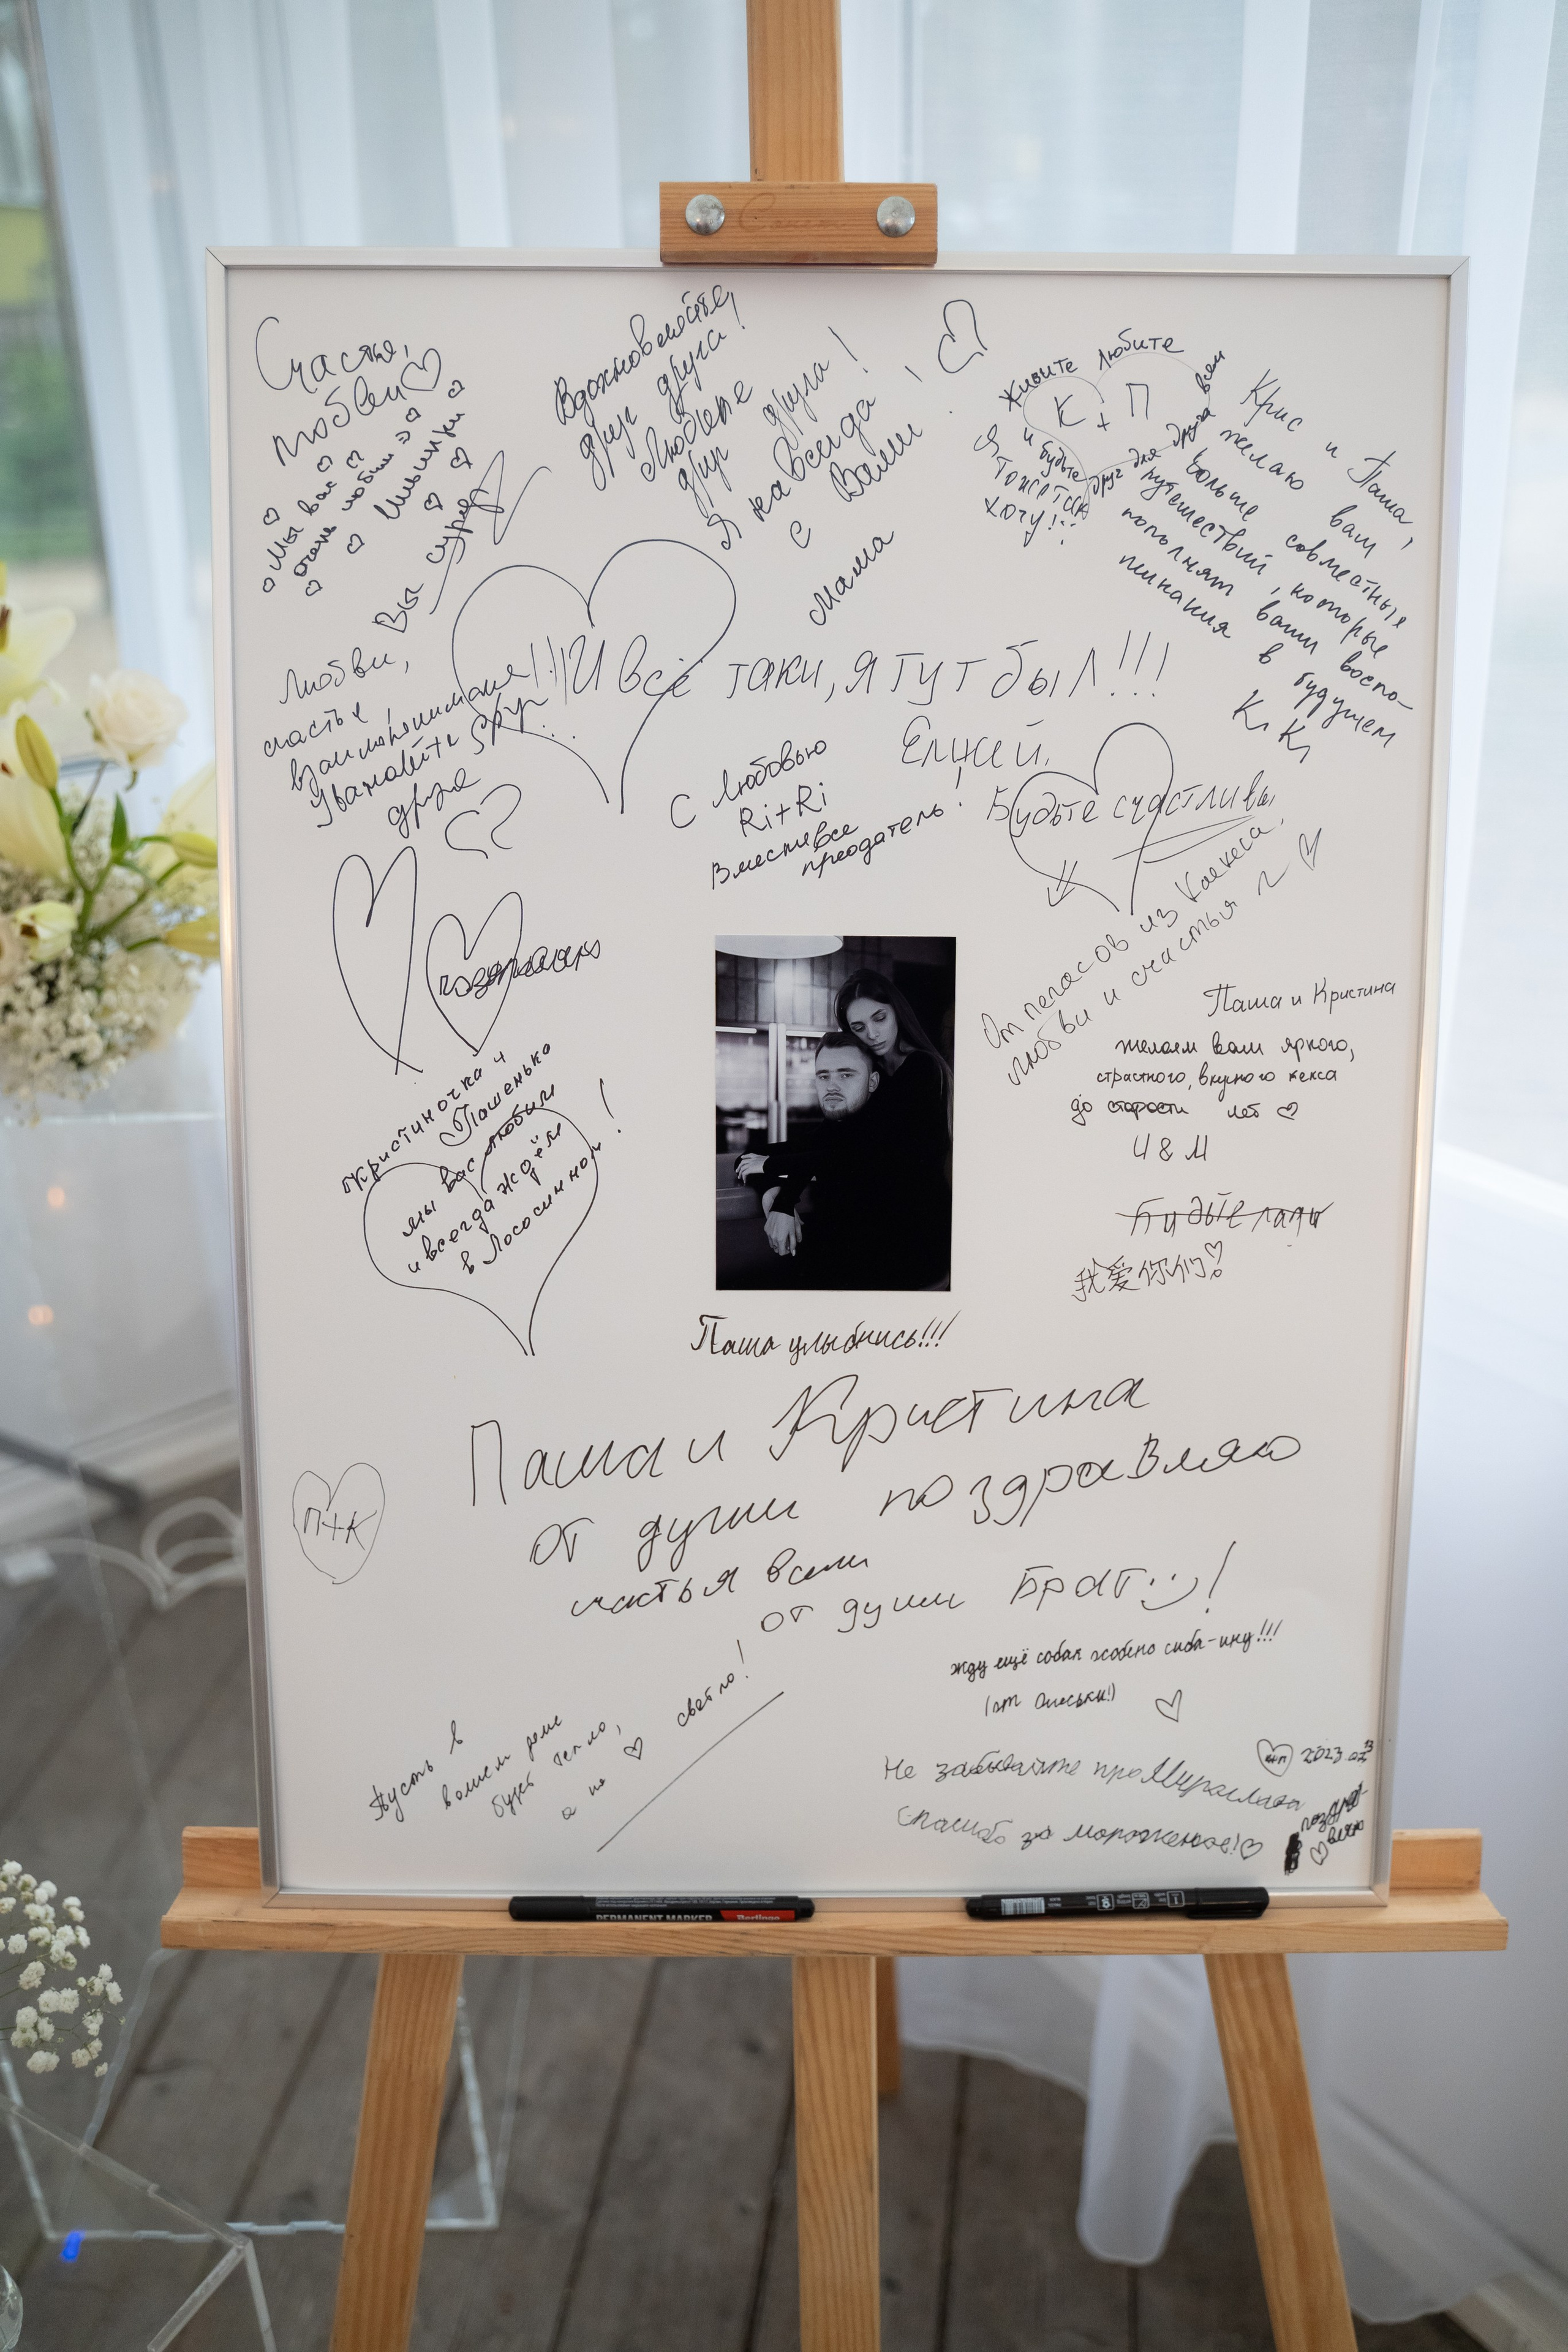 Счастье,
любви
Мы вас
очень любим =)
Ильинки
Вы супер
Вдохновляйте
друг друга!
Любите
друг друга!
Я навсегда
с Вами!
Мама
Живите любите
К + П
и будьте друг для друга всем
Я
тоже так
хочу!
Крис и Паша,
желаю вам
больше совместных
путешествий, которые
пополнят ваши воспо-
минания в будущем
Любви,
счастья,
взаимопонимания!!!
Уважайте друг
друга
И всё таки, я тут был!!!
Елжей.
С любовью
Ri+Ri
Вместе все
преодатель!
Будьте счастливы
От пегасов из
любви и счастья
Паша и Кристина
желаем вам яркого,
страстного, вкусного кекса
до старости лет
И & М
我爱你们!
Кристиночка и
Пашенько
мы вас любим
и всегда ждём
в Лососинном!
Паша улыбнись!!!
Паша и Кристина
от души поздравляю
счастья вам
от души Брат!
П+К
жду ещё собак особено сиба-ину!!!
(от Олеськи!)
Пусть в
вашем доме
будет тепло,
а не светло!
Не забывайте про Мирослава
2023
спасибо за мороженое!
поздрав
вляю
PERMANENT MARKER Berlingo